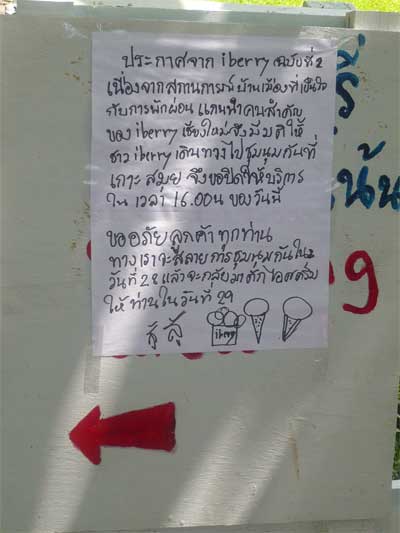 ประกาศจาก iberry ฉบับที่ 2
เนื่องจากสถานการณ์บ้านเมืองที่เป็นใจ
กับการพักผ่อน แกนนำคนสำคัญ
ของ iberry เชียงใหม่จึงมีมติให้
ชาว iberry เดินทางไปชุมนุมกันที่
เกาะสมุย จึงขอปิดให้บริการ
ใน เวลา 16.00น ของวันนี้
ขออภัยลูกค้าทุกท่าน
ทางเราจะสลายการชุมนุมกันใน
วันที่ 28 แล้วจะกลับมาตักไอศครีม
ให้ท่านในวันที่ 29
สู้ สู้
iberry
รี่
น้น
9